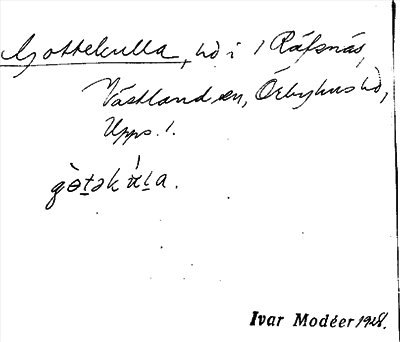 Gottekulla, hd i / Räfsnäs,
Västland sn, Örbyhus hd,
Upps. l.
gòt̠əkúl̠a.
Ivar Modéer 1928.